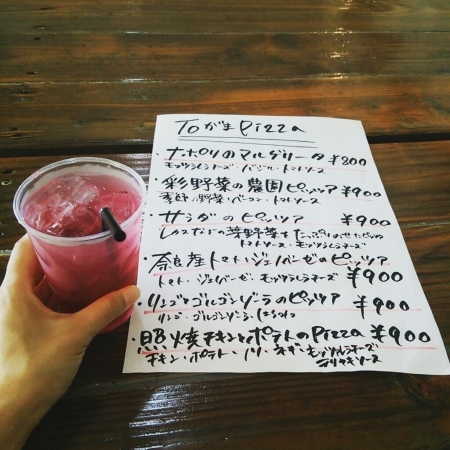 ToがまPizza
・ナポリのマルゲリータ ¥800
モッツァレラチーズ・バジル・トマトソース
・彩野菜の農園ピッツァ ¥900
季節の野菜・ベーコン・トマトソース
・サラダのピッツァ ¥900
レタスなどの葉野菜をたっぷりのせたピッツァ
トマトソース・モッツァレラチーズ
・奈良産トマト・ジェノベーゼのピッツァ ¥900
トマト・ジェノベーゼ・モッツァレラチーズ
・リンゴとゴルゴンゾーラのピッツァ ¥900
リンゴ・ゴルゴンゾーラ・はちみつ
・照焼チキンとポテトのPizza ¥900
チキン・ポテト・ノリ・ネギ・モッツァレラチーズ
テリヤキソース